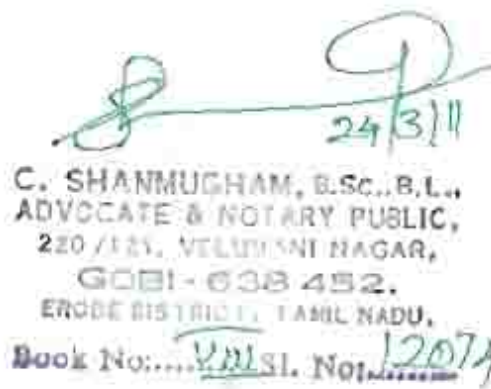 24/3/11
C. SHANMUGHAM, B.Sc.,B.L.,
ADVOCATE & NOTARY PUBLIC,
NAGAR,
GOBI - 638 452.
ERODE DISTRICT, TAMIL NADU.
Book No:....VIII Sl. No: